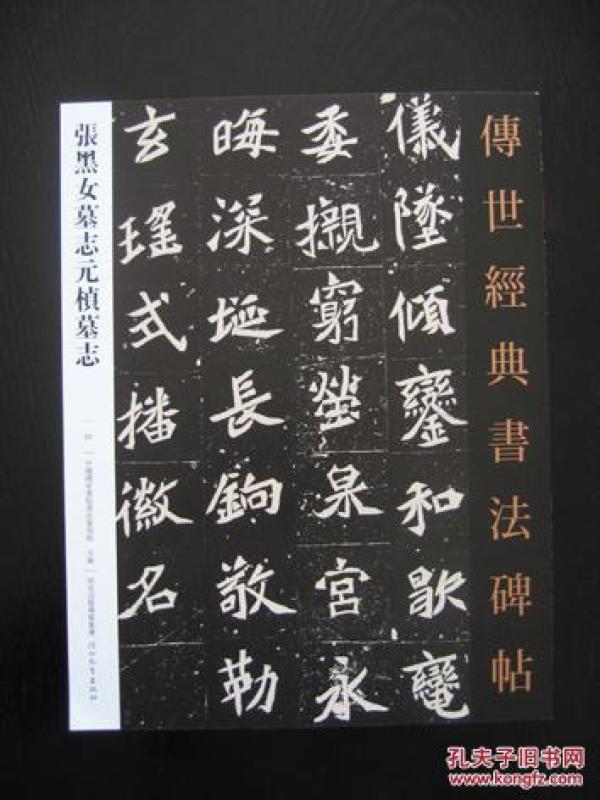 傳世經典書法碑帖
儀墜傾鑾和歇
委櫬窮塋泉宮永
晦深埏長鐍敬勒
玄瑤式播徽名
張黑女墓志元楨墓志
主編
孔夫子旧书网
www.kongfz.com